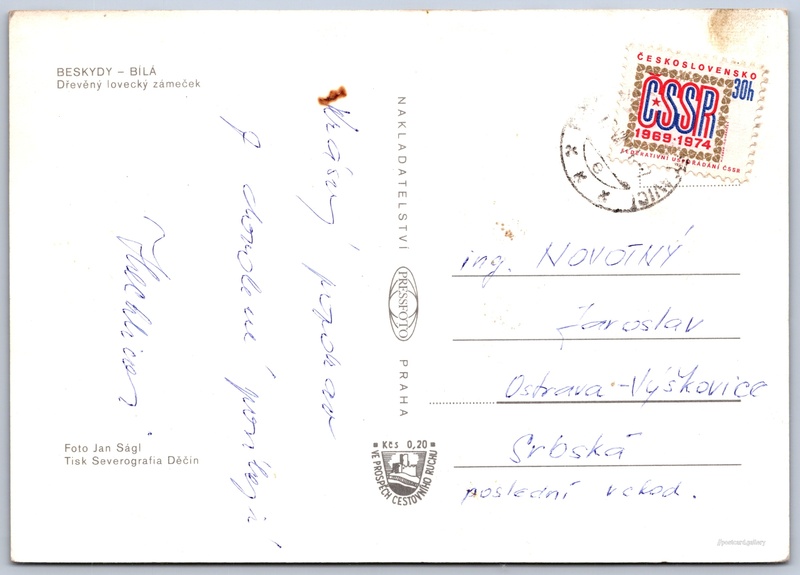 BESKYDY – BÍLÁ
Dřevěný lovecký zámeček
Krásný pozdrav
z dovolené
Foto Jan Ságl
Tisk Severografia Děčín
NAKLADATELSTVÍ PRESSFOTO PRAHA
Kčs 0,20
VE PROSPĚCH CESTOVNÍHO RUCHU
ČESKOSLOVENSKO
30h
ČSSR
1969-1974
FEDERATIVNÍ USPOŘÁDÁNÍ ČSSR
ing. NOVOTNÝ
Jaroslav
Ostrava-Výškovice
Srbská
poslední vchod.